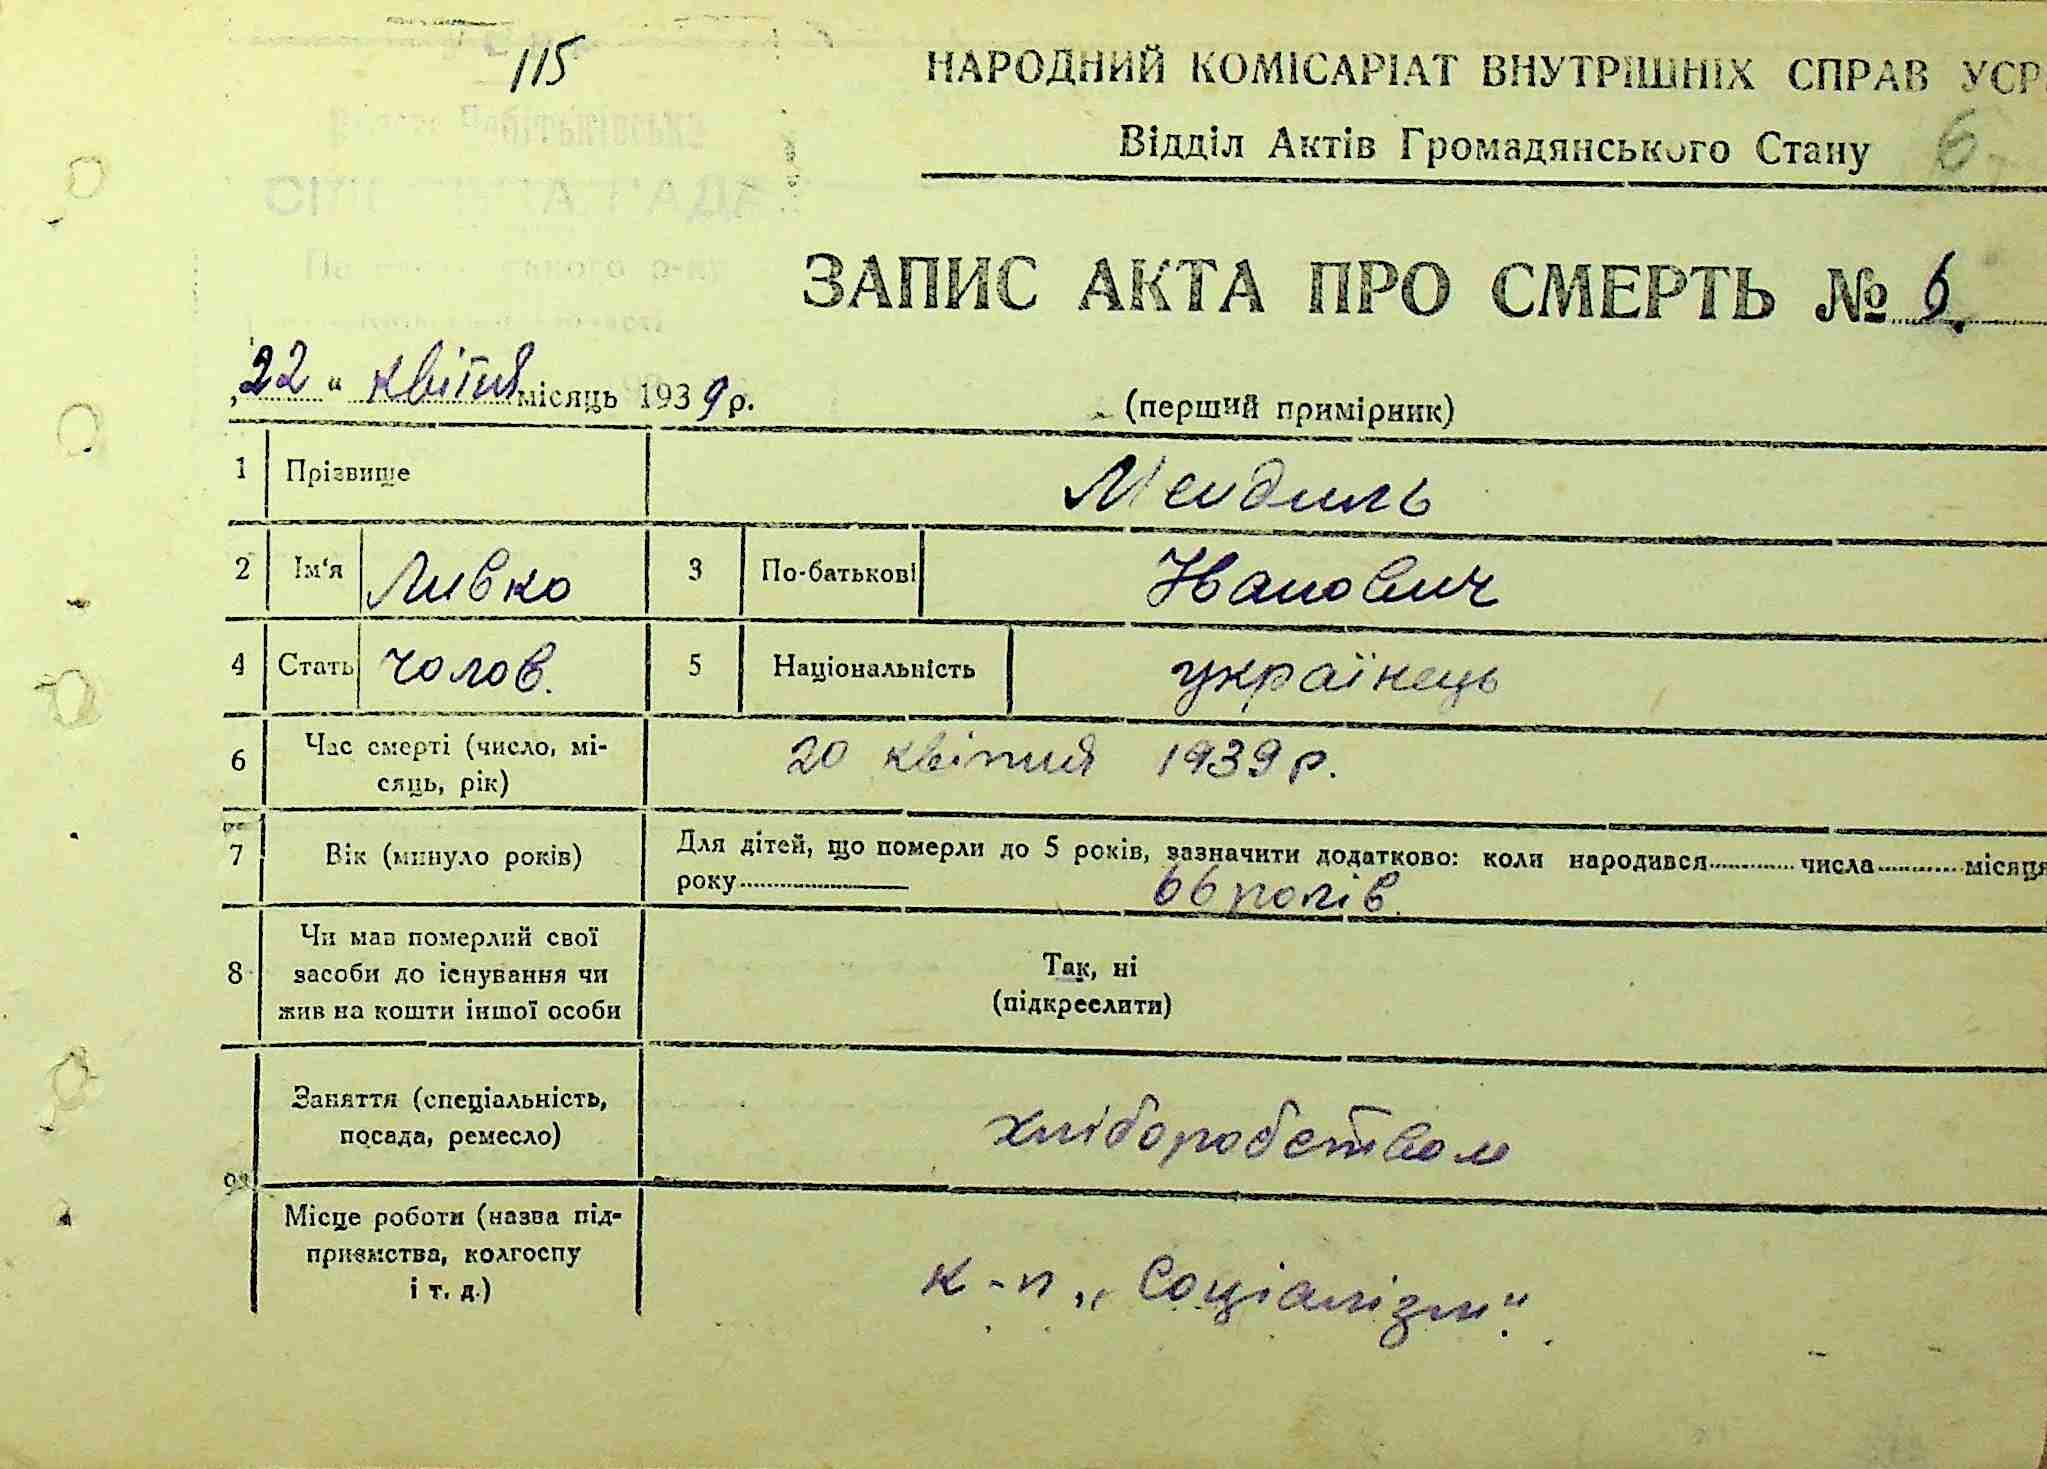 115
НАРОДНИЙ КОМІСАРІАТ ВНУТРІШНІХ СПРАВ УСР
Відділ Актів Громадянського Стану 6
ЗАПИС АКТА ПРО СМЕРТЬ № 6.
„22" квітня місяць 1939 р.
(перший примірник)
1 Прізвище Мендиль
2 Ім'я Ливко 3 По-батькові Іванович
4 Стать чолов. 5 Національність українець
6 Час смерті (число, мі-
сяць, рік) 20 квітня 1939 р.
7 Вік (минуло років) Для дітей, що померли до 5 років, зазначити додатково: коли народився числа місяця
року 66 років.
8 Чи мав померлий свої
засоби до існування чи
жив на кошти іншої особи
Так, ні
(підкреслити)
9 Заняття (спеціальність,
посада, ремесло) хліборобством
Місце роботи (назва під-
приємства, колгоспу
і т. д.)
к-п „Соціалізм".